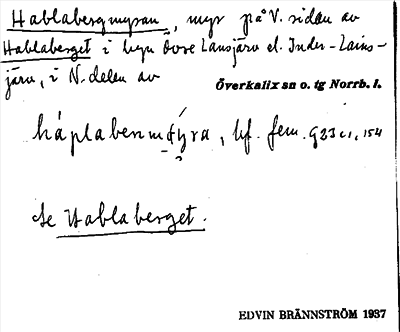 Hablabergmyran, myr på V. sidan av
Hablaberget i byn Övre Lansjärv el. Inder-Lains-
järv, i N. delen av
Överkalix sn o. tg Norrb. l.
háplabenmýra, bf. fem. G23c1, 154
Se Hablaberget.
EDVIN BRÄNNSTRÖM 1937